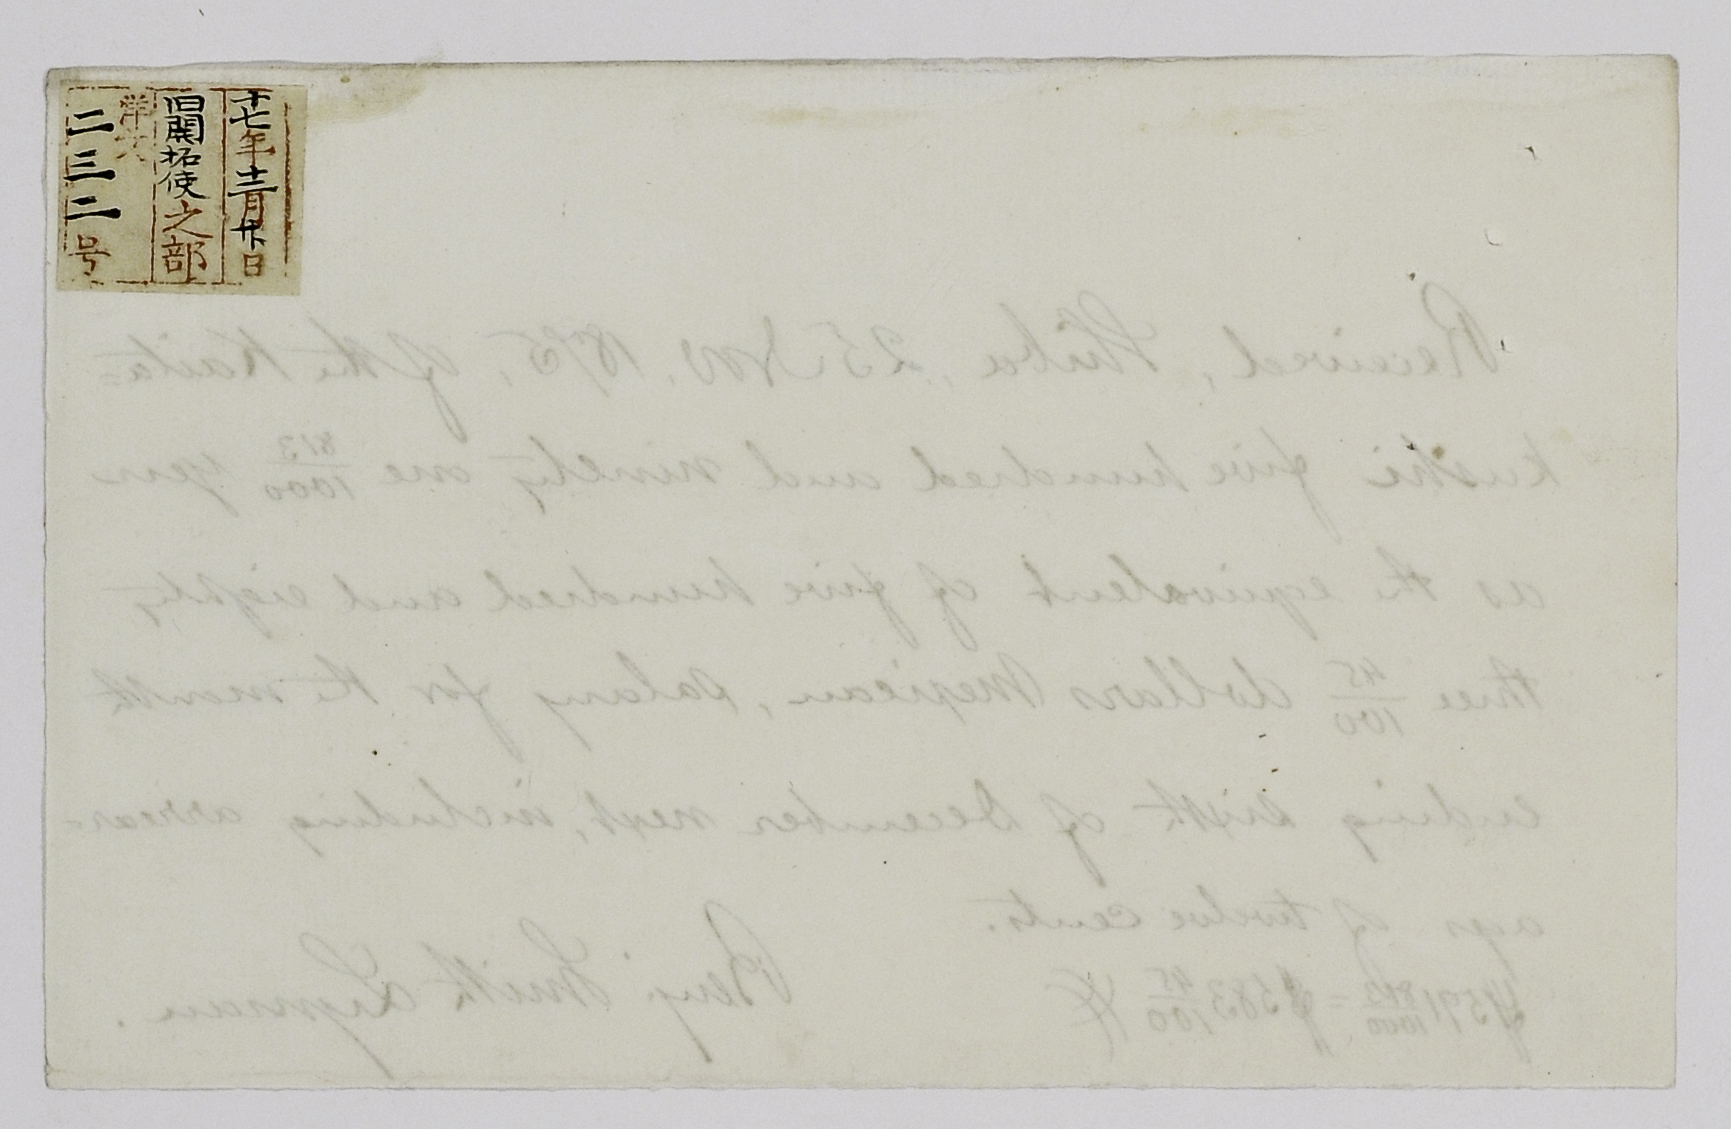 十七年十二月廿日
旧開拓使之部
洋文
二三二号
Received, Shiba, 25 Nov. 1875, of the Kaita=
kushi five hundred and ninety one 813/1000 yen
as the equivalent of five hundred and eighty
three 45/100 dollars Mexican, salary for the month
ending sixth of December next, including arrear-
ages of twelve cents.
Y591 813/1000 = $583 45/100
Benj. Smith Lyman.